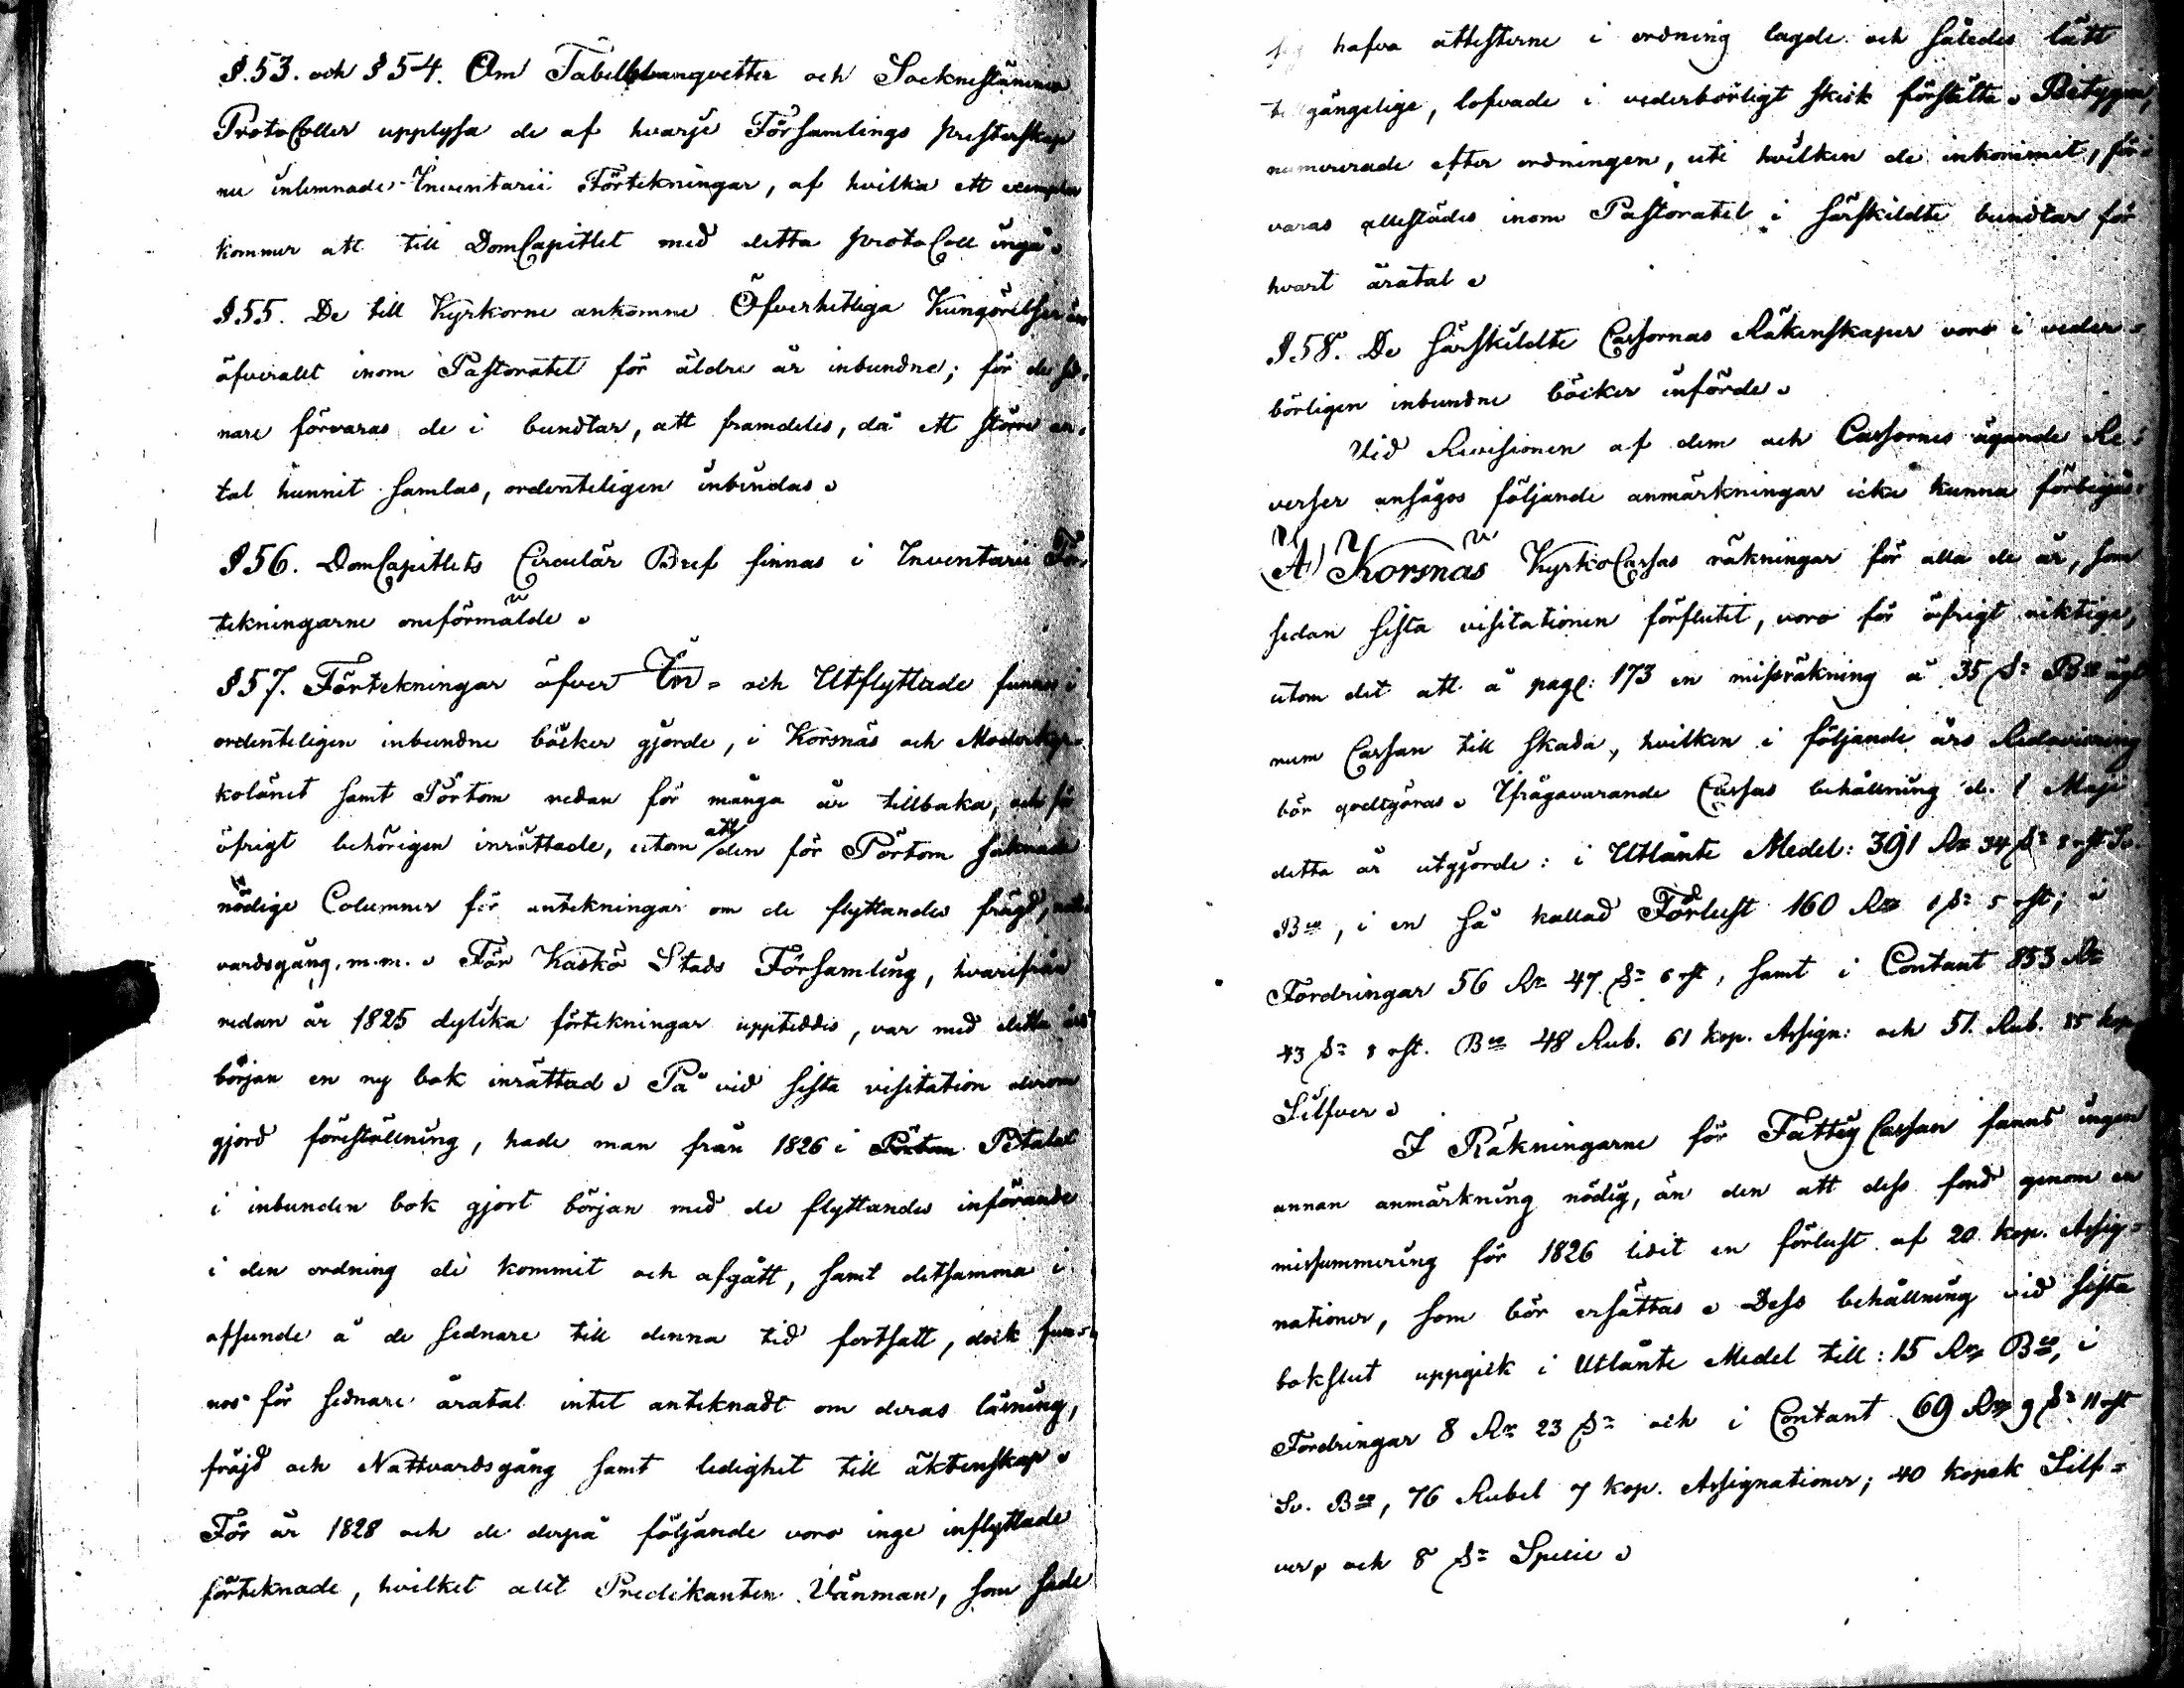 §.53. och § 54. Om Tabellblanqvetter och Socknestämmo
ProtoColler upplysa de af hvarje Församlings presterskap
nu inlemnade Inventarii Förtekningar, af hvilka ett exemplar
kommer att till DomCapitlet med detta protoColl ingå.
§.55. De till Kyrkorne ankomne Öfverhetliga Kungörelser äro
äfverallt inom Pastoratet för äldre år inbundne; för de sed-
nare förvaras de i bundtar, att framdeles, då ett större an-
tal hunnit samlas, ordenteligen inbindas.
§ 56. DomCapitlets Circulär Bref finnas i Inventarii För-
tekningarne oneförmälde.
§ 57. Förtekningar öfver In- och Utflyttade funnos i
ordenteligen inbundne böcker gjorde, i Korsnäs och Moderkyr-
kolänet samt Pörtom redan för många år tillbaka, och för
öfrigt behörigen inrättade, utom att den för Pörtom saknade
nödige Columner för antekningar om de flyttandes frägd, natt-
vardsgång, m.m. För Kaskö Stads Församling, hvarifrån
redan år 1825 dylika förtekningar uppteddes, var med detta års
början en ny bok inrättad. På vid sista visitation derom
gjord föreställning, hade man från 1826 i Pörtom Petalax
i inbunden bok gjort början med de flyttandes införande
i den ordning de kommit och afgått, samt detsamma i
afseende å de sednare till denna tid fortsatt, dock fun-
nos för sednare åratal intet anteknadt om deras läsning,
fräjd och Nattvardsgång samt ledighet till äktenskap.
För år 1828 och de derpå följande voro inge inflyttade
förteknade, hvilket allt Predikanten Vänman, som sade
sig hafva attesterne i ordning lagde och således lätt
tillgängelige, lofvade i vederbörligt skick förställa. Betygen,
numrerade efter ordningen, uti hvilken de inkommit, för-
varas allestädes inom Pastoratet i särskildte bundtar för
hvart åratal.
§.58. De särskildte Cassornas Räkenskaper voro i veder-
börligen inbundne böcker införde.
Vid Revisionen af dem och Cassornes ägande Re-
verser ansågos följande anmärkningar icke kunna förbigås:
A) Korsnäs KyrkoCassas räkningar för alla de år, som
sedan sista visitationen förflutit, voro för öfrigt riktige,
utom det att å pag: 173 en missräkning å 35 s: Bco ägt
rum Cassan till skada, hvilken i följande års Redovisning
bör godtgöras. Ifrågavarande Cassas behållning d. 1 Maji
detta år utgjorde: i Utlånte Medel: 391 Rr 34 s: 8 rst Sv.
Bco, i en så kallad Förlust 160 Rr 1 s: 5 rst; i
Fordringar 56 Rr 47 s: 6 rst, samt i Contant 853 Rr
43 s: 8 rst. Bco 48 Rub. 61 kop. Assign: och 51. Rub. 15 kop
Silfver.
I Räkningarne för Fattig Cassan fanns ingen
annan anmärkning nödig, än den att dess fond genom en
missummering för 1826 lidit en förlust af 20 kop. Assig-
nationer, som bör ersättas. Dess behållning vid sista
bokslut uppgick i Utlånte Medel till: 15 Rr Bco, i
Fordringar 8 Rr 23 s: och i Contant 69 Rr 9 s: 11 rst
Sv. Bco, 76 Rubel 7 kop. Assignationer; 40 kopek Silf-
ver, och 8 s: Specie.